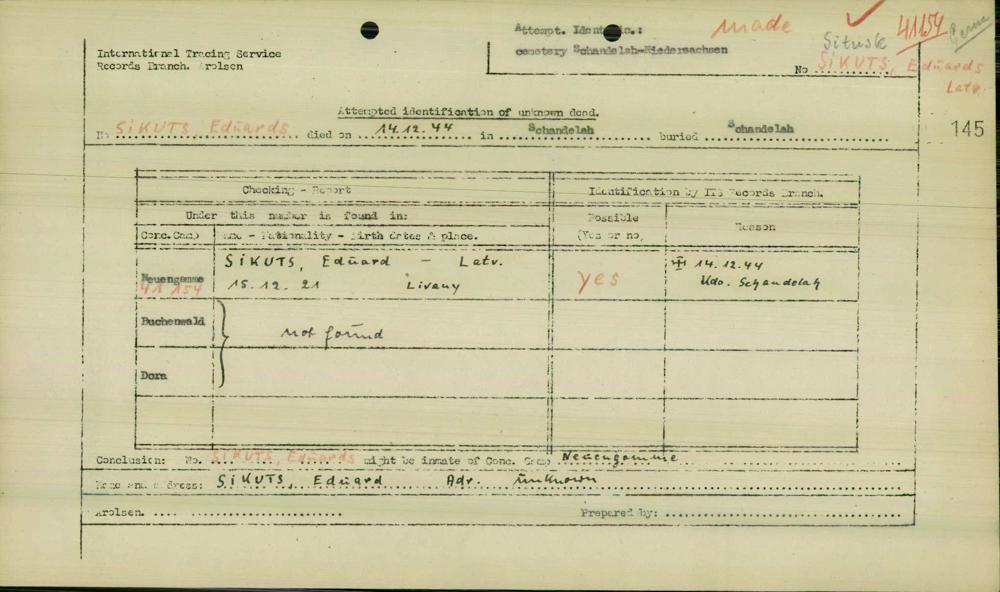 Attempt. Identific.: made 41154
cemetery Schandelah-Niedersachsen Situsk Germ
International Tracing Service
Records Branch. Arolsen
No ........... SiKUTS, Edūards
Latv.
Attempted identification of unknown dead.
No SiKUTS, Edūards died on 14.12.44 in Schandelah buried Schandelah
145
Checking - Report Identification by ITS Records Branch.
Under this number is found in: Possible Reason
Conc.Camp Name - Nationality - Birth dates & place. (Yes or no)
SiKUTS, Edūard - Latv. 14.12.44
Neuengamme 41 154 15.12.21 Livany yes Kdo. Schandelah
Buchenwald not foūnd
Dora
Conclusion: No. SiKUTS, Edūards might be inmate of Conc. Camp Neuengamme
Name and address: SiKUTS, Edūard Adr. ūnknown
Arolsen. .......................... Prepared by: ................................